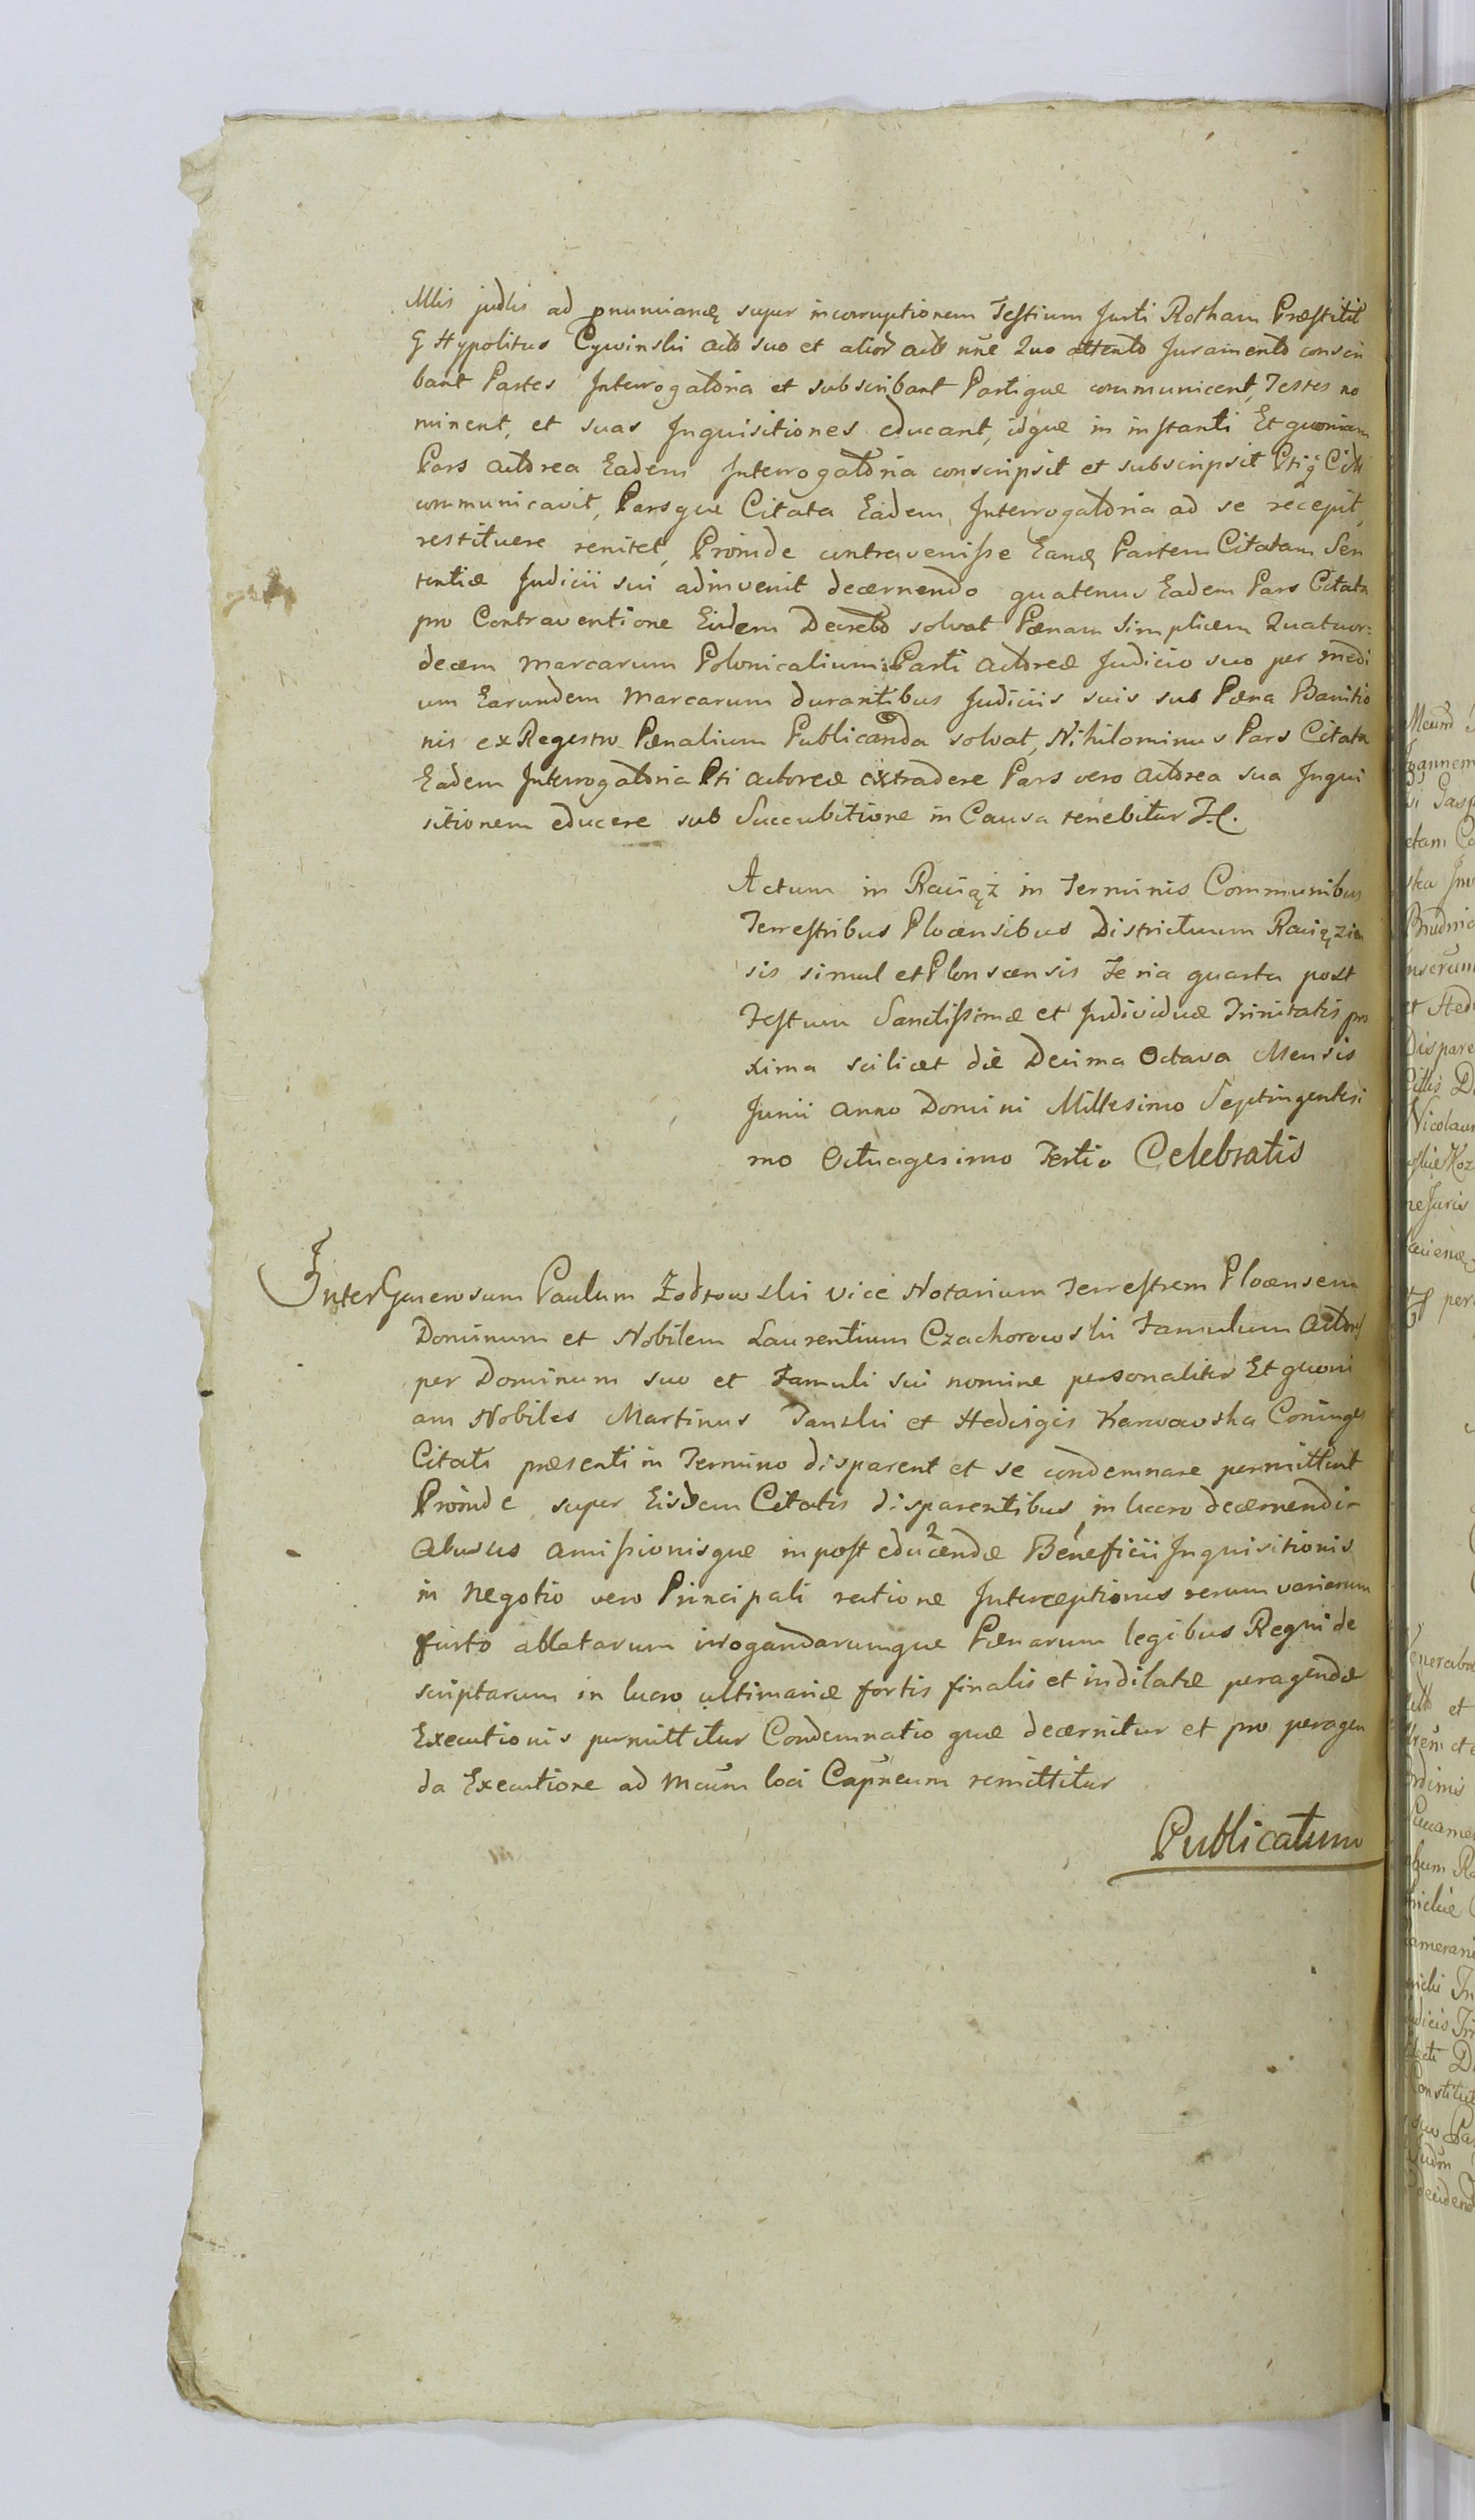 Mlis judlis ad pnunciandę super incorruptionem Testium Jurti Rotham Præstitit
G Hypolitus Cywinski actt suo et alior actt nne Quo attento Juramento conscri
bant Partes Interrogatoria et subscribant Partique communicent, Testes no
minent, et suas Inquisitiones educant, idque in instanti Et quoniam
Pars actorea Eadem Interrogatoria conscripsit et subscripsit Ptiq Citti
communicavit, Parsque Citata Eadem Interrogatoria ad se recepit,
restituere renitet, Proinde contravenisse Eandę Partem Citatam Sen
tentiæ Judicii sui adinvenit decernendo quatenus Eadem Pars Citata
pro Contraventione Eidem Decreto solvat Pænam Simplicem Quatuor:
decem Marcarum Polonicalium Parti actoreæ Judicio suo per medi
um Earundem Marcarum durantibus Judiciis suis sub Pæna Banitio
nis ex Registro Pænalium Publicanda solvat, Nihilominus Pars Citata
Eadem Interrogatoria Pti actoreæ extradere Pars vero actorea sua Inqui
sitionem educere sub Succubitione in Causa tenebitur
Actum in Raciąż in Terminis Communibus
Terrestribus Plocensibus Districtuum Raciązien
sis simul et Plonscensis Feria quarta post
Festum Sanctissimæ et Individuæ Trinitatis pro
xima scilicet die Decima Octava Mensis
Junii Anno Domini Millesimo Septingentesi
mo Octuagesimo Tertio Celebratis
Inter Generosum Paulum Zodrowski Vice Notarium Terrestrem Plocensem
Dominum et Nobilem Laurentium Czachorowski Famulum Actores
per Dominum suo et Famuli sui nomine personaliter Et quoni
am Nobiles Martinus Danski et Hedvigis Karwowska Coniuges
Citati præsenti in Termino disparent et se condemnare permittunt
Proinde super Eisdem Citatis disparentibus in lucro decernendi
Abusus amissionisque in post educendæ 2 Beneficii 1 Inquisitionis
in Negotio vero Principali ratione Interceptionis rerum variarum
furto ablatarum irrogandarumque Pænarum legibus Regni de
scriptarum in lucro ultimariæ fortis finalis et indilatæ peragendæ
Executionis permittitur Condemnatio quæ decernitur et pro peragen
da Executione ad Mcum loci Capneum remittitur
Publicatum